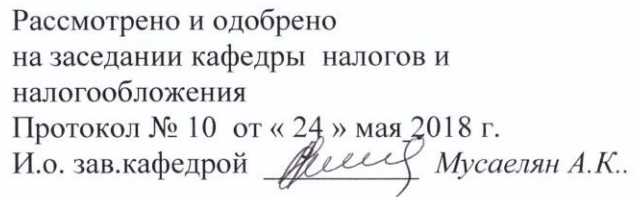 Рассмотрено и одобрено
на заседании кафедры налогов и
налогообложения
Протокол № 10 от « 24 » мая 2018 г.
И.о. зав.кафедрой Мусаелян А.К..